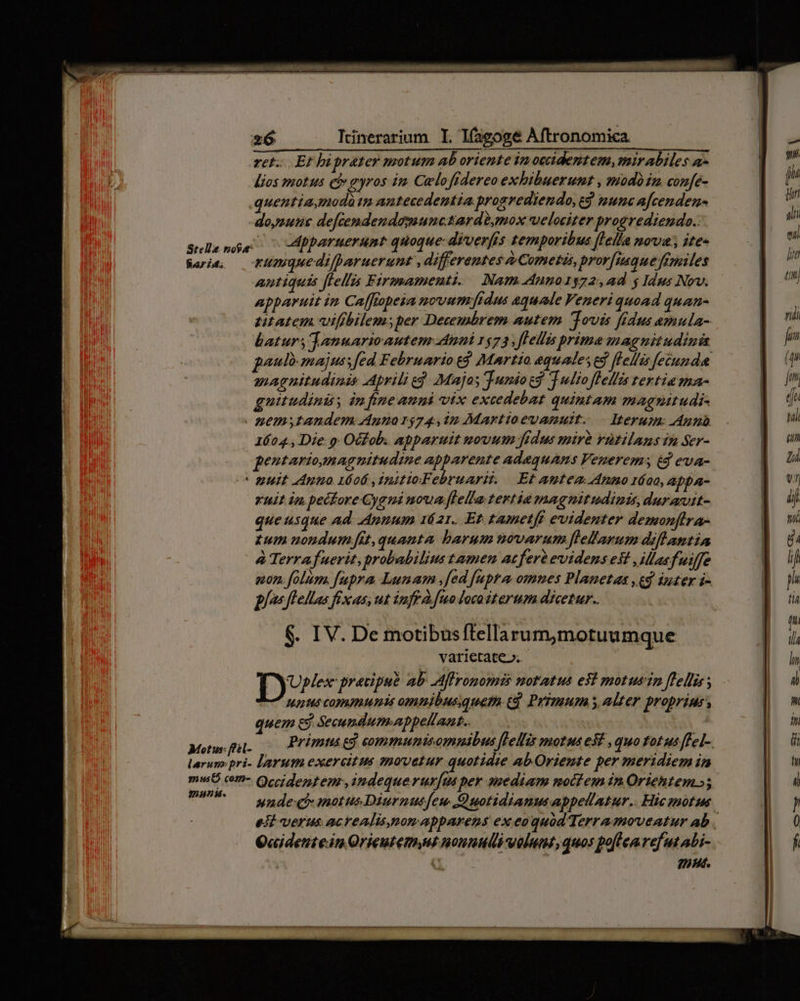 26 Itinerarium I. Isagoge Astronomica
ret. Et hi præter motum ab oriente in occidentem, mirabiles a-
lios motus & gyros in Cælo sidereo exhibuerunt, modò in conse-
quentia, modò in antecedentia progrediendo, & nunc ascenden-
do, nunc descendendo, nunc tardè, mox velociter progrediendo.
Stella nova
varia.
Apparuerunt quoque diversis temporibus stellæ novæ, ite-
rumque disparuerunt, differentes à Cometis, prorsusque similes
antiquis stellis Firmamenti. Nam Anno 1572, ad 5 Idus Nov.
apparuit in Cassiopeia novum sidus æquale Veneri quoad quan-
titatem visibilem; per Decembrem autem Jovis sidus æmula-
batur; Januario autem Anni 1573, stellis primæ magnitudinis
paulò majus; sed Februario & Martio æquale, & stellis secundæ
magnitudinis Aprili & Majo; Junio & Julio stellis tertiæ ma-
gnitudinis; in fine anni vix excedebat quintam magnitudi-
nem; tandem Anno 1574, in Martio evanuit. Iterum Anno
1604, Die 9 Octob. apparuit novum sidus mirè rutilans in Ser-
pentario, magnitudine apparente adæquans Venerem; & eva-
nuit Anno 1606, initio Februarii. Et antea Anno 1600, appa-
ruit in pectore Cygni nova stella tertiæ magnitudinis, duravit-
que usque ad Annum 1621. Et tametsi evidenter demonstra-
tum nondum sit, quanta harum novarum stellarum distantia
à Terra fuerit, probabilius tamen ac ferè evidens est, illas fuisse
non solùm supra Lunam, sed supra omnes Planetas, & inter i-
psas stellas fixas, ut infrà suo loco iterum dicetur.
§. IV. De motibus stellarum, motuumque
varietate.
DUplex præcipuè ab Astronomis notatus est motus in stellis;
unus communis omnibus, quem & Primum; alter proprius,
quem & Secundum appellant.
Motus stel-
larum pri-
mus & com-
munis.
Primus & communis omnibus stellis motus est, quo totus stel-
larum exercitus movetur quotidie ab Oriente per meridiem in
Occidentem, indeque rursus per mediam noctem in Orientem;
unde & motus Diurnus seu Quotidianus appellatur. Hic motus
est verus ac realis, non apparens ex eo quòd Terra moveatur ab
Occidente in Orientem, ut nonnulli volunt, quos postea refutabi-
mus.